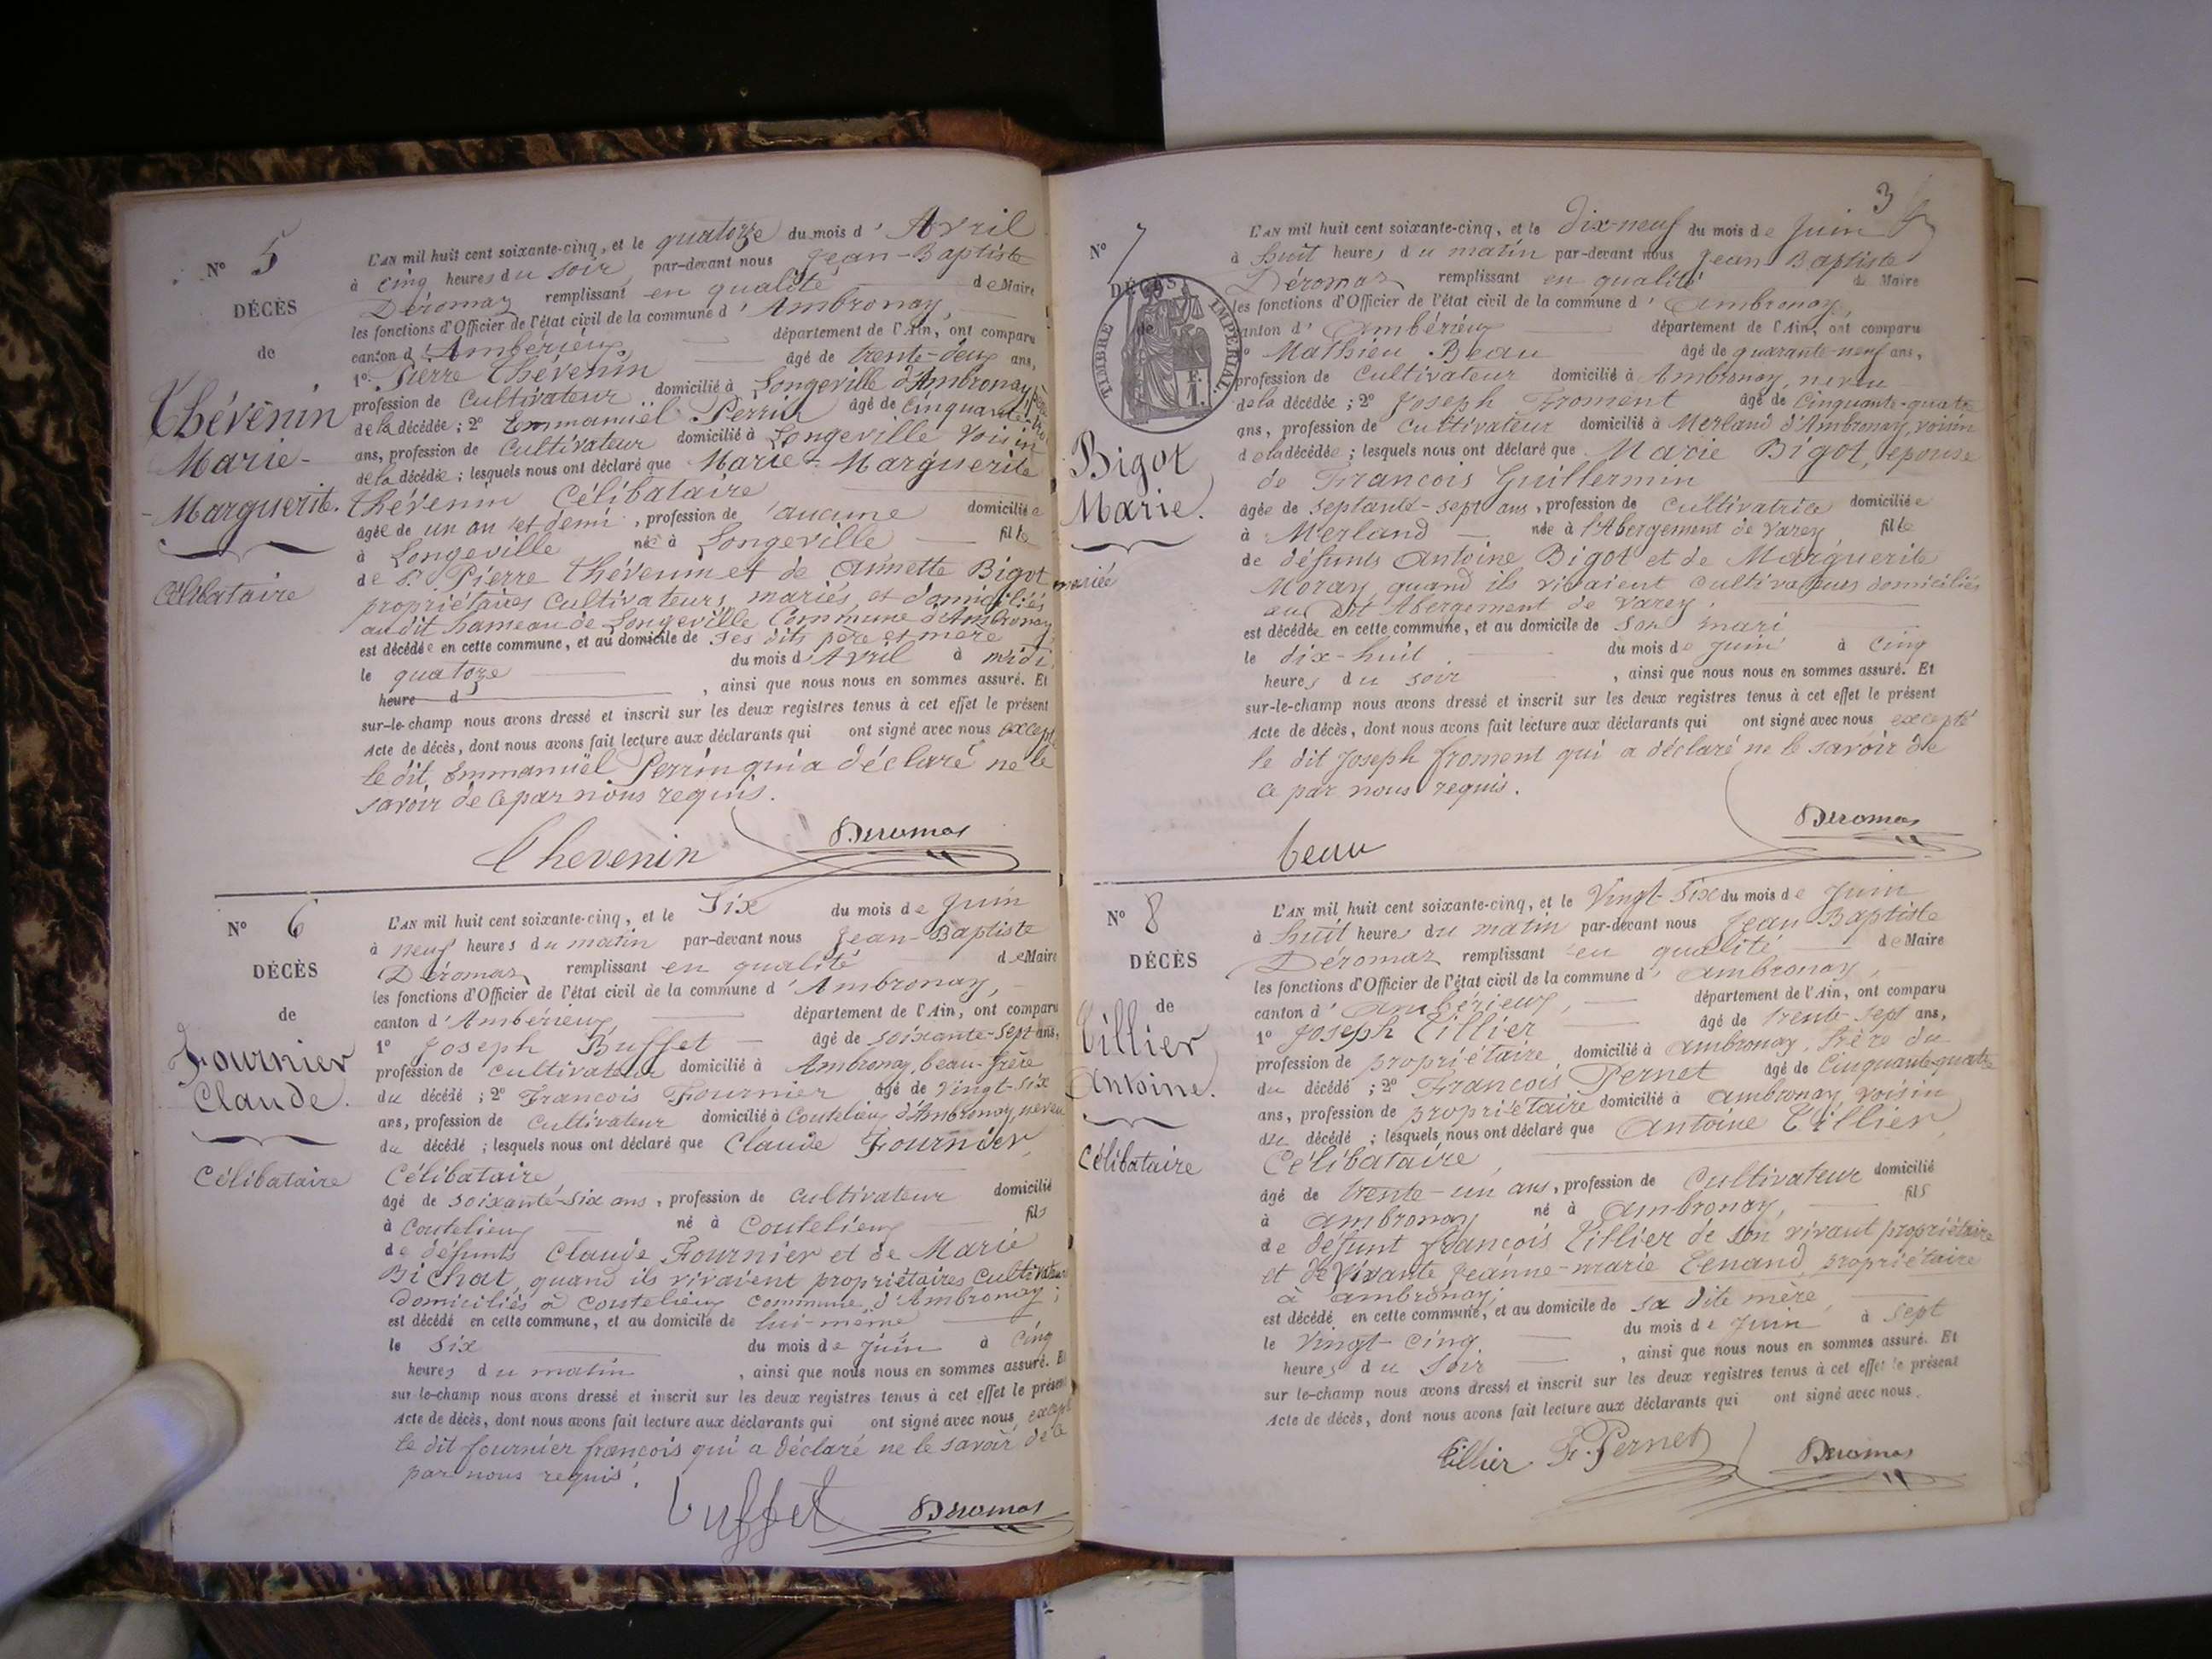 N° 5
DÉCÈS
de
Thévenin
Marie-
Marguerite.
Célibataire
L'AN mil huit cent soixante-cinq, et le quatorze du mois d'Avril
à cinq heures du soir, par-devant nous Jean-Baptiste
Déromas remplissant en qualité de Maire
les fonctions d'Officier de l'état civil de la commune d'Ambronay,
canton d'Ambérieux, département de l'Ain, ont comparu
1° Pierre Thévenin âgé de trente-deux ans,
profession de Cultivateur domicilié à Longeville d'Ambronay,
de la décédée ; 2° Emmanuël Perrin âgé de cinquante
ans, profession de Cultivateur domicilié à Longeville voisin
de la décédée ; lesquels nous ont déclaré que Marie-Marguerite
Thévenin Célibataire
âgée de un an et demi, profession de aucune domiciliée
à Longeville née à Longeville fille
de Pierre Thévenin et de Annette Bigot mariée
propriétaires Cultivateurs, mariés, et domiciliés
au dit hameau de Longeville Commune d'Ambronay,
est décédée en cette commune, et au domicile de ses dits père et mère
le quatorze du mois d'Avril à midi,
heure d , ainsi que nous nous en sommes assuré. Et
sur-le-champ nous avons dressé et inscrit sur les deux registres tenus à cet effet le présent
Acte de décès, dont nous avons fait lecture aux déclarants qui ont signé avec nous excepté
le dit Emmanuël Perrin qui a déclaré ne le
savoir de ce par nous requis.
Thevenin Deromas
N° 6
DÉCÈS
de
Fournier
Claude.
Célibataire
L'AN mil huit cent soixante-cinq, et le Six du mois de Juin
à neuf heures du matin par-devant nous Jean-Baptiste
Déromas remplissant en qualité de Maire
les fonctions d'Officier de l'état civil de la commune d'Ambronay,
canton d'Ambérieux, département de l'Ain, ont comparu
1° Joseph Buffet âgé de soixante-sept ans,
profession de cultivateur domicilié à Ambronay, beau-frère
du décédé ; 2° François Fournier âgé de vingt-six
ans, profession de Cultivateur domicilié à Coutelieux d'Ambronay, neveu
du décédé ; lesquels nous ont déclaré que Claude Fournier,
Célibataire,
âgé de soixante-six ans, profession de Cultivateur domicilié
à Coutelieux né à Coutelieux fils
de défunts Claude Fournier et de Marie
Bichat, quand ils vivaient propriétaires Cultivateurs
domiciliés à Coutelieux commune d'Ambronay ;
est décédé en cette commune, et au domicile de lui-même
le six du mois de Juin à cinq
heures du matin , ainsi que nous nous en sommes assuré. Et
sur-le-champ nous avons dressé et inscrit sur les deux registres tenus à cet effet le présent
Acte de décès, dont nous avons fait lecture aux déclarants qui ont signé avec nous, excepté
le dit fournier françois qui a déclaré ne le savoir de ce
par nous requis.
buffet Deromas
3
N° 7
DÉCÈS
de
TIMBRE IMPÉRIAL
1 F.
Bigot
Marie.
L'AN mil huit cent soixante-cinq, et le dix-neuf du mois de Juin
à huit heures du matin par-devant nous Jean-Baptiste
Déromas remplissant en qualité de Maire
les fonctions d'Officier de l'état civil de la commune d'Ambronay,
canton d'Ambérieux département de l'Ain, ont comparu
1° Mathieu Beau âgé de quarante-neuf ans,
profession de Cultivateur domicilié à Ambronay, neveu
de la décédée ; 2° Joseph Froment âgé de cinquante-quatre
ans, profession de Cultivateur domicilié à Merland d'Ambronay, voisin
de la décédée ; lesquels nous ont déclaré que Marie Bigot, épouse
de François Guillermin
âgée de septante-sept ans, profession de cultivatrice domiciliée
à Merland née à l'Abergement de Varey fille
de défunts Antoine Bigot et de Marguerite
Moray, quand ils vivaient cultivateurs domiciliés
au dit Abergement de Varey ;
est décédée en cette commune, et au domicile de son mari
le dix-huit du mois de Juin à cinq
heures du soir , ainsi que nous nous en sommes assuré. Et
sur-le-champ nous avons dressé et inscrit sur les deux registres tenus à cet effet le présent
Acte de décès, dont nous avons fait lecture aux déclarants qui ont signé avec nous excepté
le dit Joseph froment qui a déclaré ne le savoir de
ce par nous requis.
beau Deromas
N° 8
DÉCÈS
de
Tillier
Antoine.
Célibataire
L'AN mil huit cent soixante-cinq, et le Vingt-Six du mois de Juin
à huit heures du matin par-devant nous Jean-Baptiste
Déromas remplissant en qualité de Maire
les fonctions d'Officier de l'état civil de la commune d'Ambronay,
canton d'Ambérieux, département de l'Ain, ont comparu
1° Joseph Tillier âgé de trente-sept ans,
profession de propriétaire domicilié à Ambronay, frère du
du décédé ; 2° François Pernet âgé de Cinquante-quatre
ans, profession de propriétaire domicilié à Ambronay, voisin
du décédé ; lesquels nous ont déclaré que Antoine Tillier,
Célibataire,
âgé de trente-un ans, profession de Cultivateur domicilié
à Ambronay né à Ambronay, fils
de défunt françois Tillier de son vivant propriétaire
et de vivante Jeanne-marie Tenand, propriétaire
à Ambronay ;
est décédé en cette commune, et au domicile de sa dite mère,
le Vingt-cinq du mois de Juin à sept
heures du soir , ainsi que nous nous en sommes assuré. Et
sur le-champ nous avons dressé et inscrit sur les deux registres tenus à cet effet le présent
Acte de décès, dont nous avons fait lecture aux déclarants qui ont signé avec nous.
tillier F. Pernet Deromas